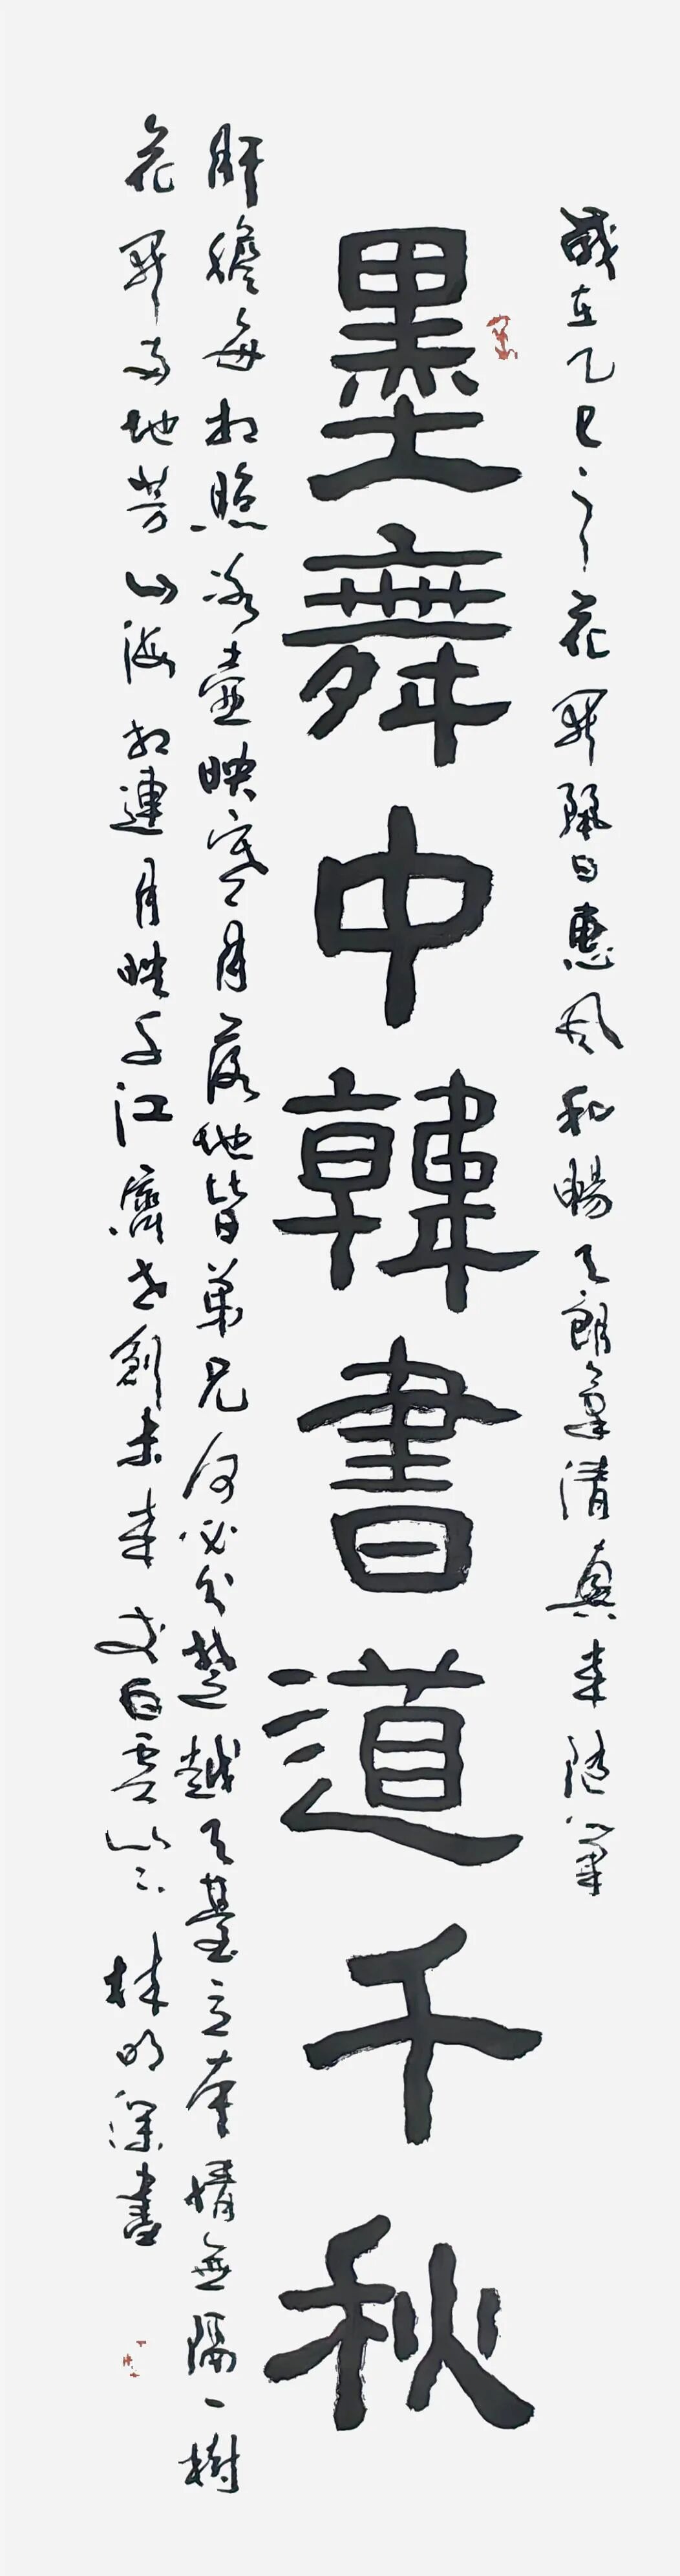 歲在乙巳之花開麗日惠風和暢天朗氣清興來隨筆
墨舞中韓書道千秋
肝膽每相照冰壺映寒月落地皆弟兄何必分楚越天臺立本情無隔一樹
花開兩地芳山海相連月映千江創未來白雲林明深書